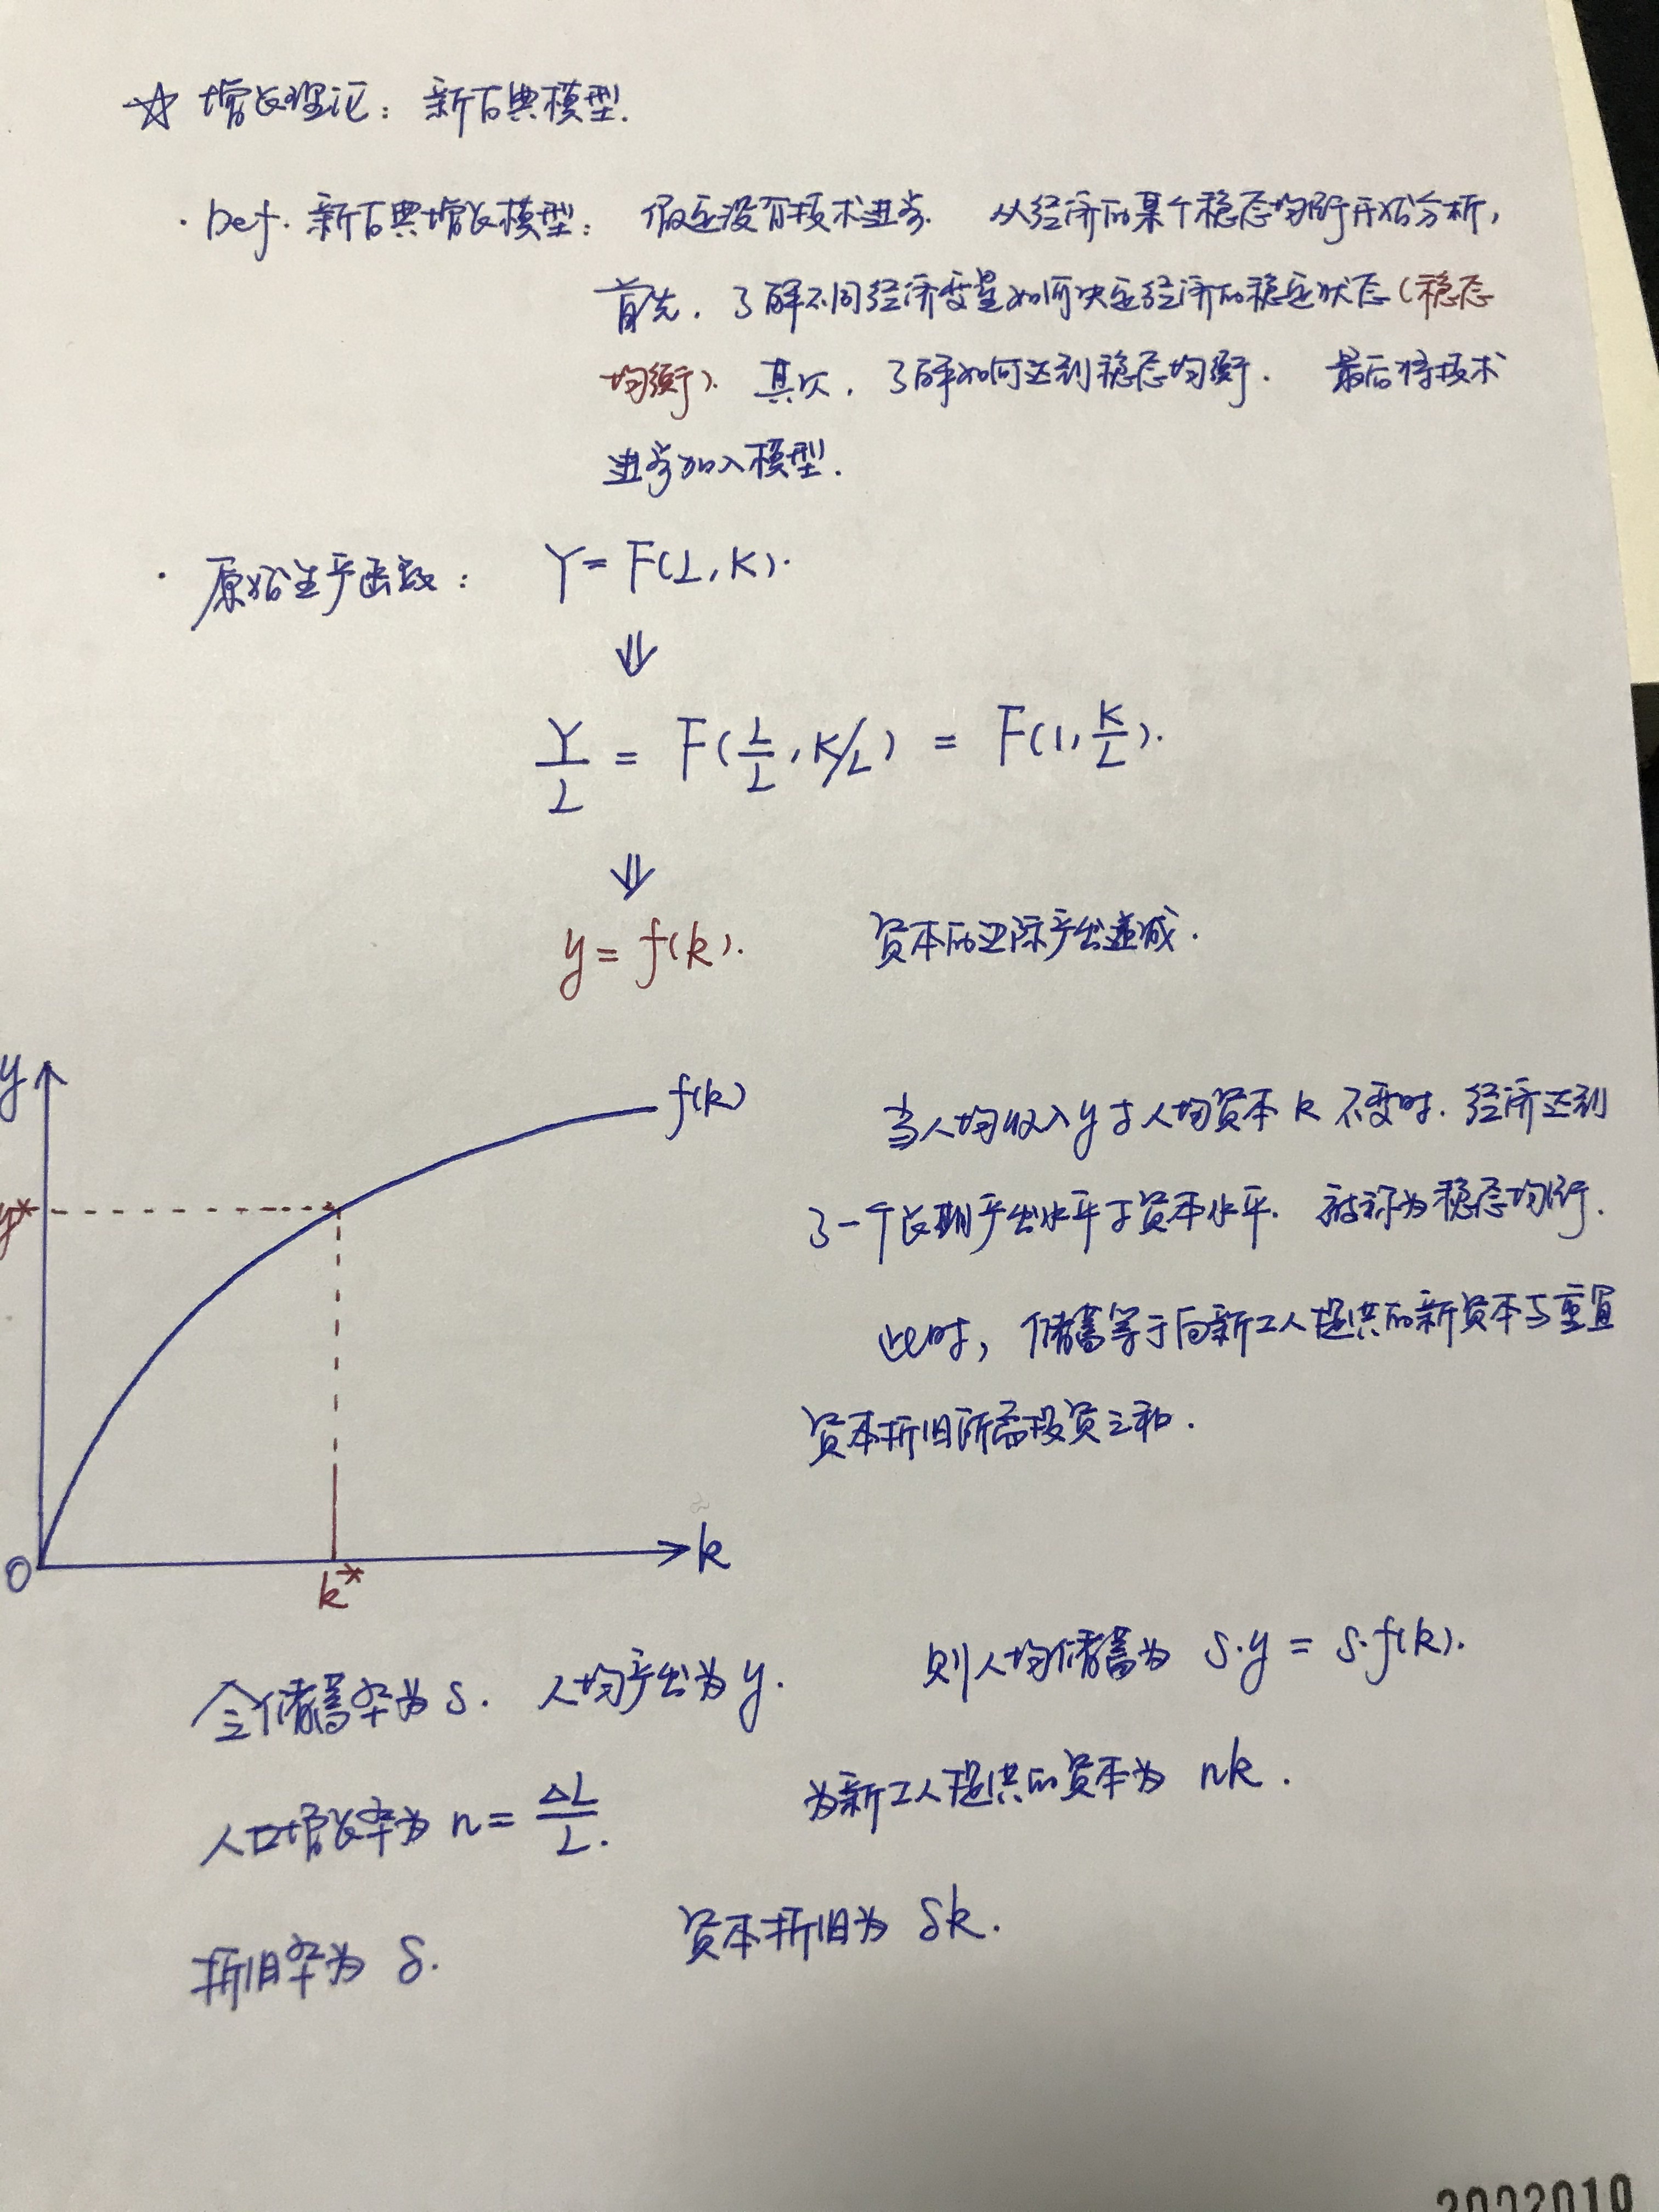 ☆ 增长理论：新古典模型.
· Def. 新古典增长模型： 假定没有技术进步. 从经济的某个稳态均衡开始分析,
首先. 了解不同经济变量如何决定经济的稳定状态(稳态
均衡). 其次. 了解如何达到稳态均衡. 最后将技术
进步加入模型.
· 原始生产函数： Y = F(L, K).
⇓
Y/L = F(L/L, K/L) = F(1, K/L).
⇓
y = f(k). 资本的边际产出递减.
y
f(k)
当人均收入y与人均资本k不变时. 经济达到
y*
了一个长期产出水平与资本水平. 被称为稳态均衡.
此时, 储蓄等于向新工人提供的新资本与重置
资本折旧所需投资之和.
k
O
k*
令储蓄率为s. 人均产出为y. 则人均储蓄为 s·y = s·f(k).
人口增长率为 n = ΔL/L. 为新工人提供的资本为 nk.
折旧率为 δ. 资本折旧为 δk.